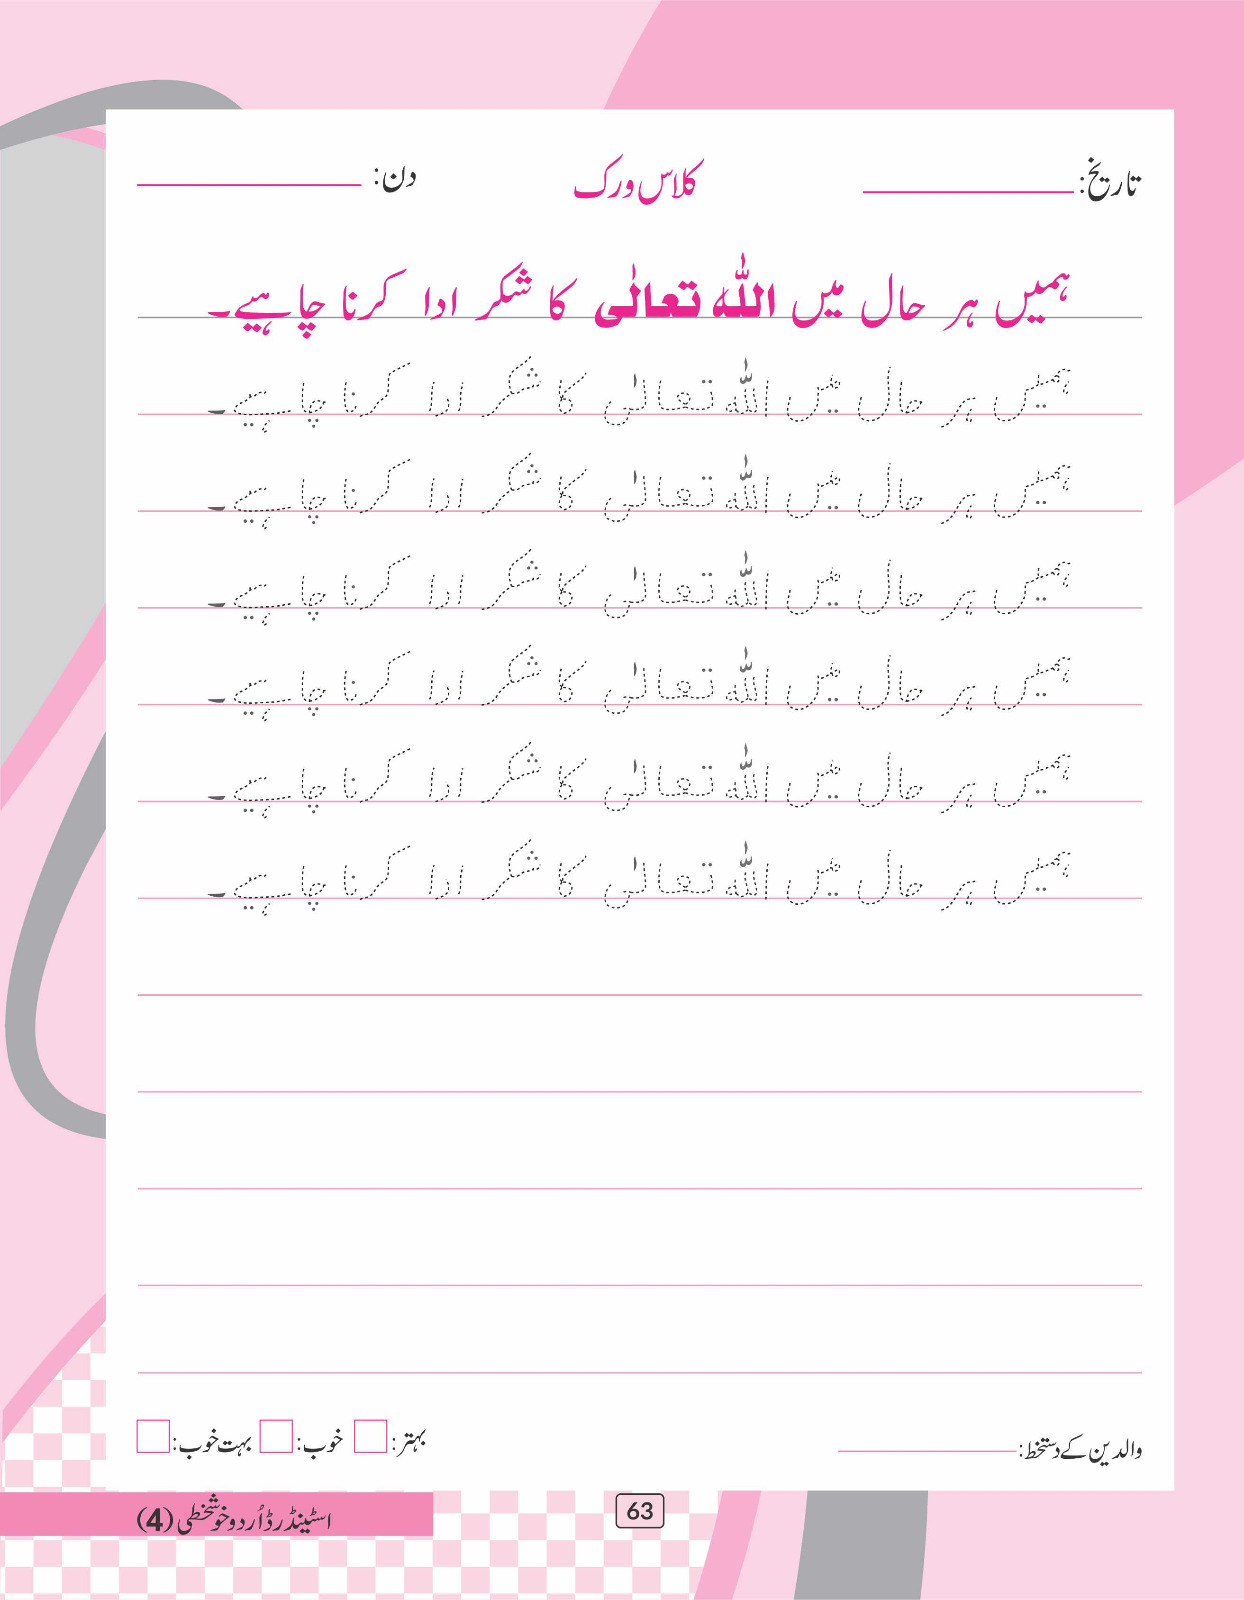 تاریخ: کلاس ورک دن:
ہمیں ہر حال میں اللہ تعالٰی کا شکر ادا کرنا چاہیے۔
ہمیں ہر حال میں اللہ تعالٰی کا شکر ادا کرنا چاہیے۔
ہمیں ہر حال میں اللہ تعالٰی کا شکر ادا کرنا چاہیے۔
ہمیں ہر حال میں اللہ تعالٰی کا شکر ادا کرنا چاہیے۔
ہمیں ہر حال میں اللہ تعالٰی کا شکر ادا کرنا چاہیے۔
ہمیں ہر حال میں اللہ تعالٰی کا شکر ادا کرنا چاہیے۔
ہمیں ہر حال میں اللہ تعالٰی کا شکر ادا کرنا چاہیے۔
والدین کے دستخط: بہتر: خوب: بہت خوب:
63 اسٹینڈرڈ اُردو خوشخطی (4)